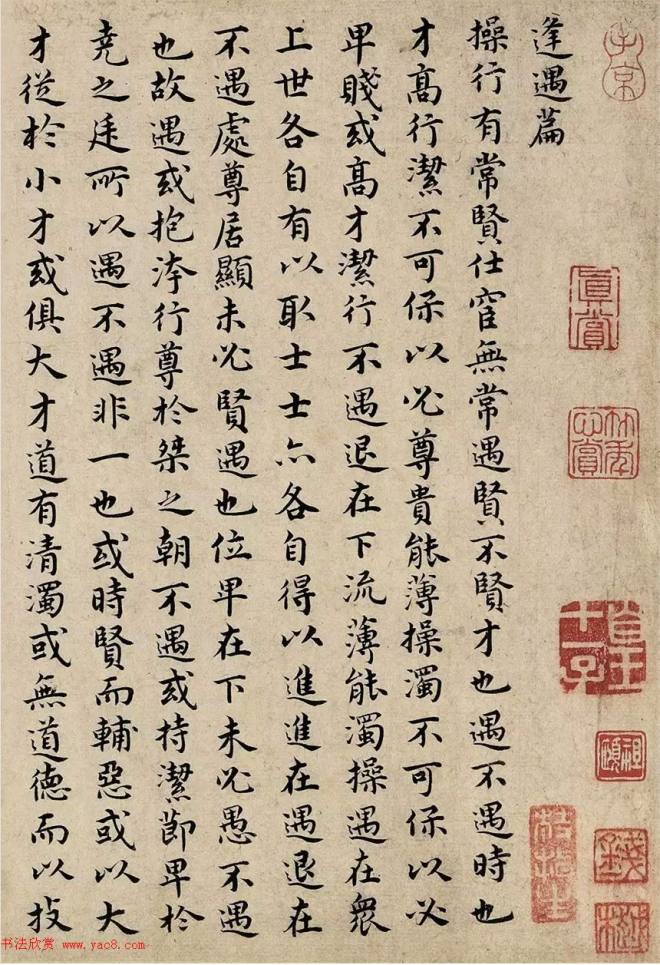 子京
眞賞
逢遇篇
操行有常賢仕宦無常遇賢不賢才也遇不遇時也
才高行潔不可保以必尊貴能薄操濁不可保以必
卑賤或高才潔行不遇退在下流薄能濁操遇在衆
上世各自有以取士士亦各自得以進進在遇退在
不遇處尊居顯未必賢遇也位卑在下未必愚不遇
也故遇或抱洿行尊於桀之朝不遇或持潔節卑於
堯之廷所以遇不遇非一也或時賢而輔惡或以大
才從於小才或俱大才道有清濁或無道德而以技
书法欣赏 www.yac8.com